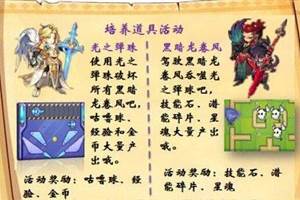 培养道具活动
光之弹珠
使用光之
弹珠破坏
所有黑暗
龙卷风吧,
咕噜球、
经验和金
币大量产
出哦。
活动奖励:咕噜球、经
验、金币
黑暗龙卷风
驾驶黑暗龙
卷风吞噬光
之弹珠吧,
技能石、潜
能碎片、星
魂大量产出
哦。
活动奖励:技能石、潜
能碎片、星魂